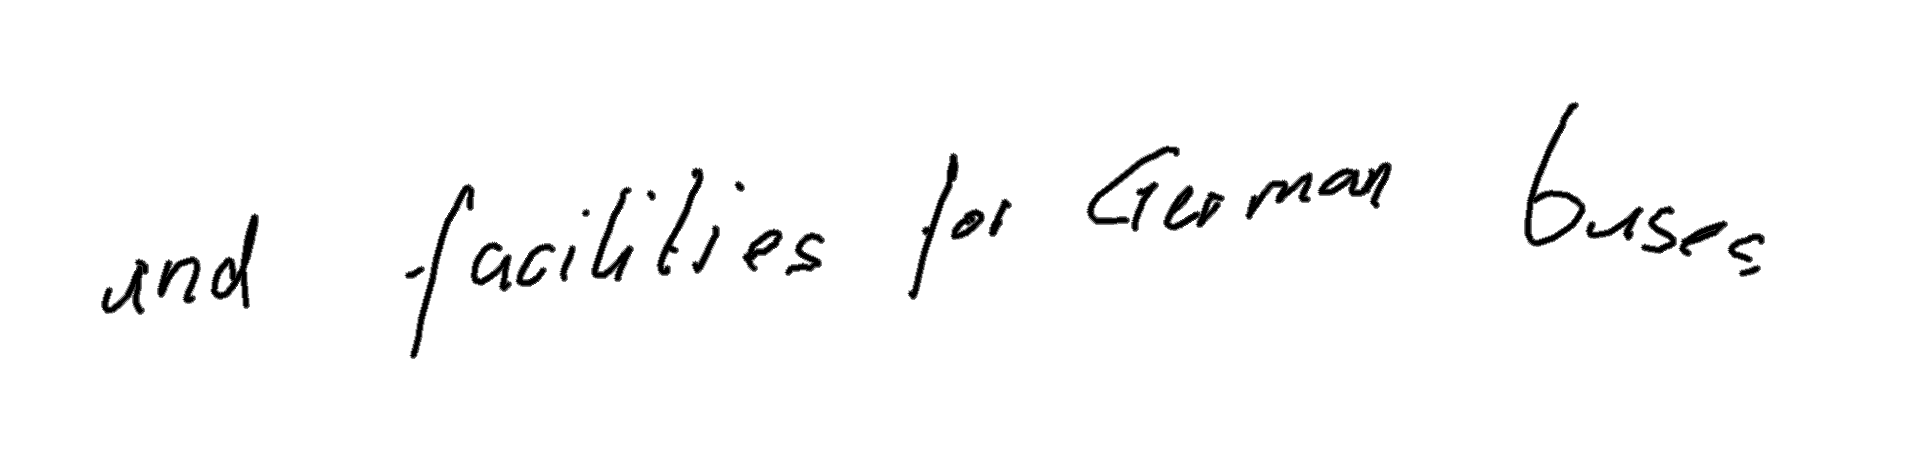 and facilities for German buses